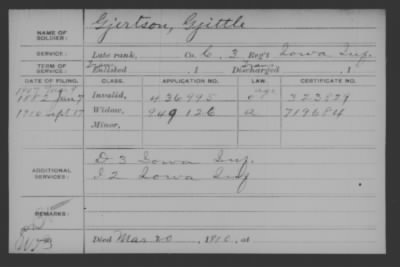 NAME OF SOLDIER: Gjertson, Gjittle
SERVICE: Late rank, Co. C, 3 Reg't Iowa Inf.
TERM OF SERVICE: Enlisted , 1 Discharged , 1
DATE OF FILING. CLASS. APPLICATION NO. LAW. CERTIFICATE NO.
1907
1882 Jan 7 Invalid, 436995 323829
1910 Sept 17 Widow, 949126 a 719684
Minor,
ADDITIONAL SERVICES: D 3 Iowa Inf.
I 2 Iowa Inf
REMARKS:
Died Mar 20, 1910, at